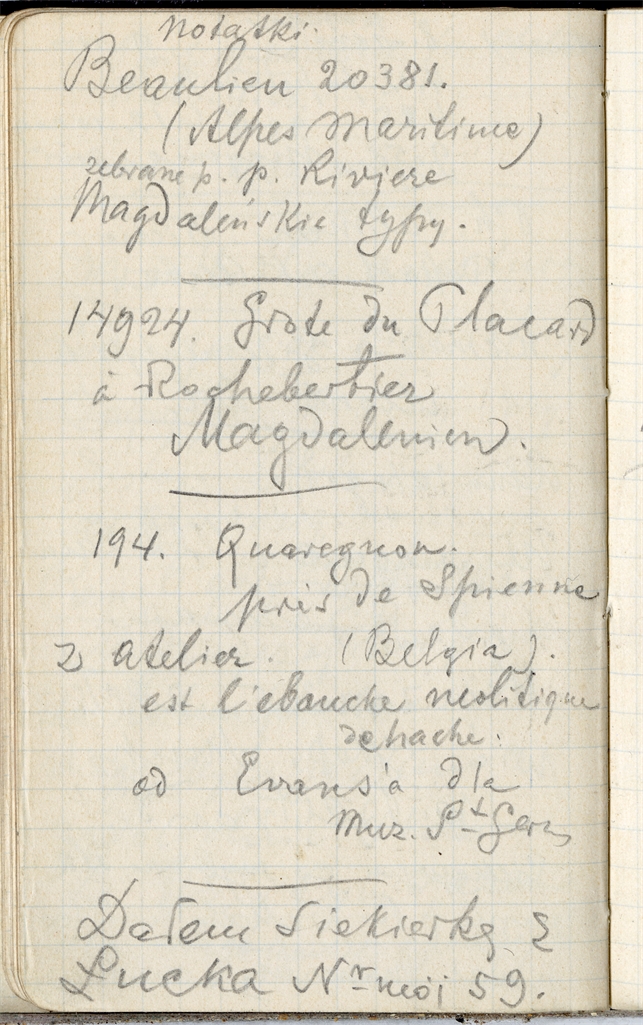 notatki.
Beaulieu 20381.
(Alpes Maritime)
zebrane p. p. Riviere
Magdaleńskie typy.
14924. Grote du Placard
à Rochebertier
Magdalenien.
194. Quaregnon.
près de Spienne
z atelier. (Belgia).
est l'ebauche neolitique
de hache.
od Evans'a dla
Muz. St Germ
Dałem Siekierkę z
Łucka Nr mój 59.